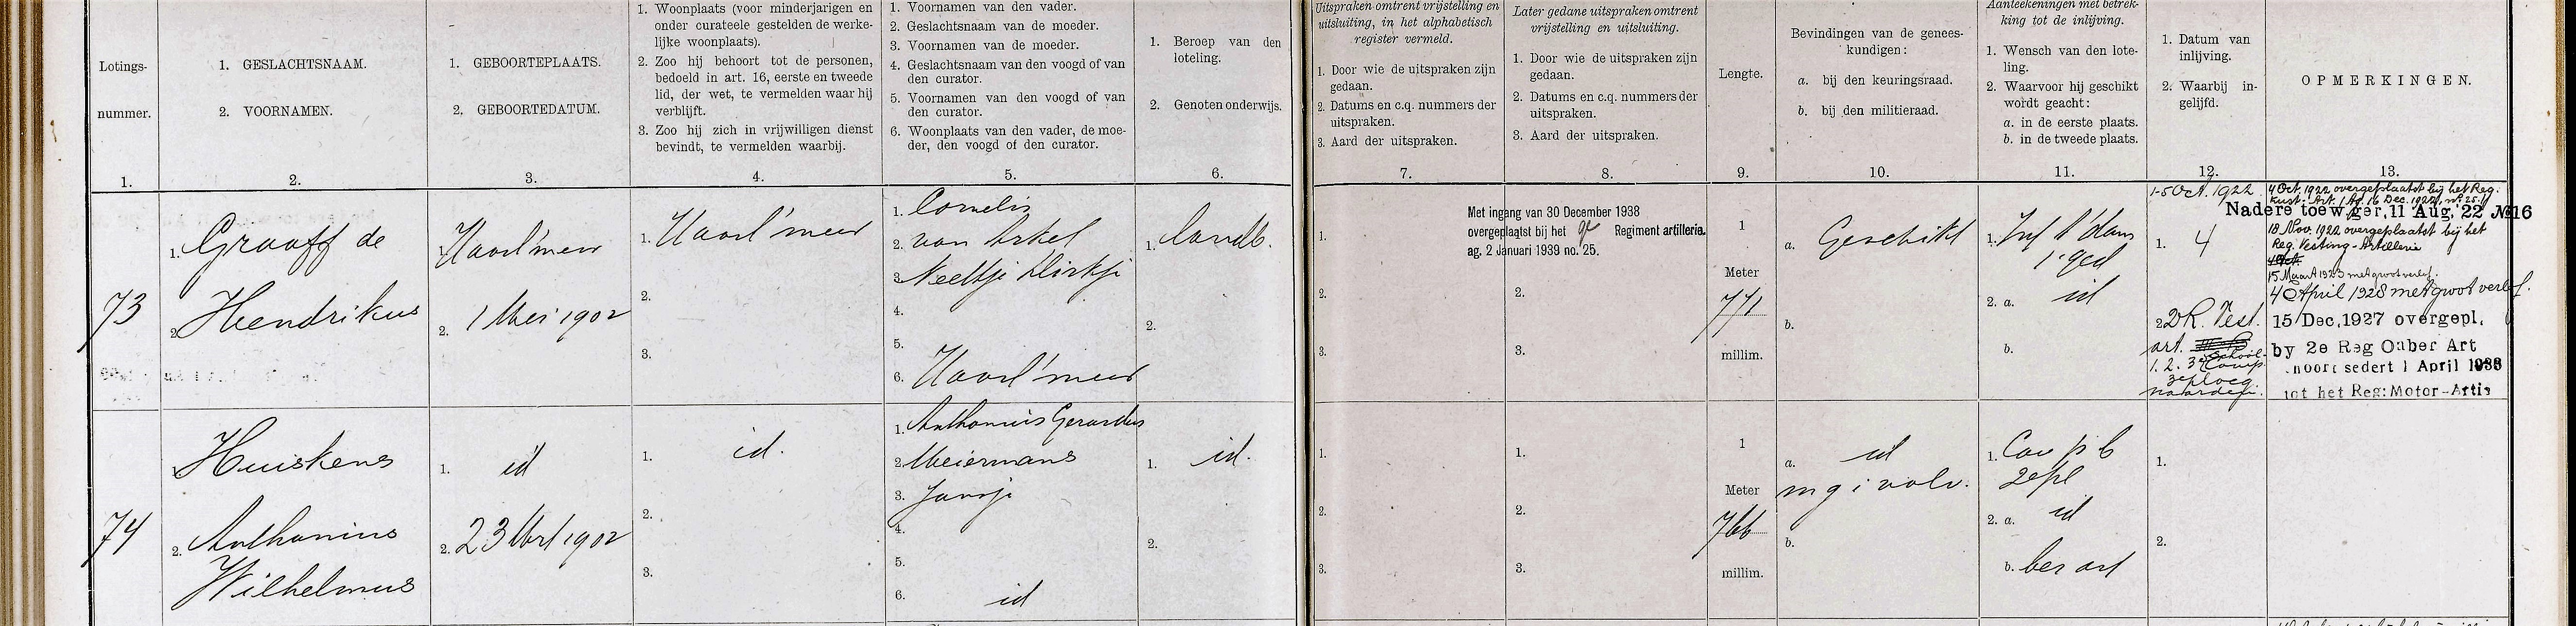 Lotings-
nummer.
1.
1. GESLACHTSNAAM.
2. VOORNAMEN.
2.
1. GEBOORTEPLAATS.
2. GEBOORTEDATUM.
3.
1. Woonplaats (voor minderjarigen en
onder curateele gestelden de werke-
lijke woonplaats).
2. Zoo hij behoort tot de personen,
bedoeld in art. 16, eerste en tweede
lid, der wet, te vermelden waar hij
verblijft.
3. Zoo hij zich in vrijwilligen dienst
bevindt, te vermelden waarbij.
4.
1. Voornamen van den vader.
2. Geslachtsnaam van de moeder.
3. Voornamen van de moeder.
4. Geslachtsnaam van den voogd of van
den curator.
5. Voornamen van den voogd of van
den curator.
6. Woonplaats van den vader, de moe-
der, den voogd of den curator.
5.
1. Beroep van den
loteling.
2. Genoten onderwijs.
6.
Uitspraken omtrent vrijstelling en
uitsluiting, in het alphabetisch
register vermeld.
1. Door wie de uitspraken zijn
gedaan.
2. Datums en c.q. nummers der
uitspraken.
3. Aard der uitspraken.
7.
Later gedane uitspraken omtrent
vrijstelling en uitsluiting.
1. Door wie de uitspraken zijn
gedaan.
2. Datums en c.q. nummers der
uitspraken.
3. Aard der uitspraken.
8.
Lengte.
9.
Bevindingen van de genees-
kundigen:
a. bij den keuringsraad.
b. bij den militieraad.
10.
Aanteekeningen met betrek-
king tot de inlijving.
1. Wensch van den lote-
ling.
2. Waarvoor hij geschikt
wordt geacht:
a. in de eerste plaats.
b. in de tweede plaats.
11.
1. Datum van
inlijving.
2. Waarbij in-
gelijfd.
12.
OPMERKINGEN.
13.
73
1. Graaff de
2. Hendrikus
1. Haarl'meer
2. 1 Mei 1902
1. Haarl'meer
2.
3.
1. Cornelis
2. van Arkel
3. Neeltje Dirkje
4.
5.
6. Haarl'meer
1. landb.
2.
1.
2.
3.
Met ingang van 30 December 1938
overgeplaatst bij het 9e Regiment artillerie.
ag. 2 Januari 1939 no. 25.
2.
3.
1
Meter
771
millim.
a. Geschikt
b.
1. Inf A'dam
1e ged
2. a. id
b.
1-5 Oct. 1922
1. 4
2. 2R. Vest.
art.
1. 2. 3e School
Comp.
3e ploeg
4 Oct. 1922 overgeplaatst bij het Reg.
Kust-Art. Ag. 16 Dec. 1922, nº. 25.
Nadere toew ger, 11 Aug. '22 №16
18 Nov. 1922 overgeplaatst bij het
Reg. Vesting-Artillerie
15 Maart 1923 met groot verlof.
4 April 1928 met groot verlof.
15 Dec. 1927 overgepl.
by 2e Reg Onber Art
hoort sedert 1 April 1938
tot het Reg: Motor-Artie
74
1. Huiskens
2. Anthonius
Wilhelmus
1. id
2. 23 Mrt 1902
1. id.
2.
3.
1. Anthonius Gerardus
2. Meiermans
3. Jansje
4.
5.
6. id
1. id.
2.
1.
2.
3.
1.
2.
3.
1
Meter
766
millim.
a. id
m g i volv.
b.
1. Cav p b
2e pl
2. a. id
b. ber art
1.
2.